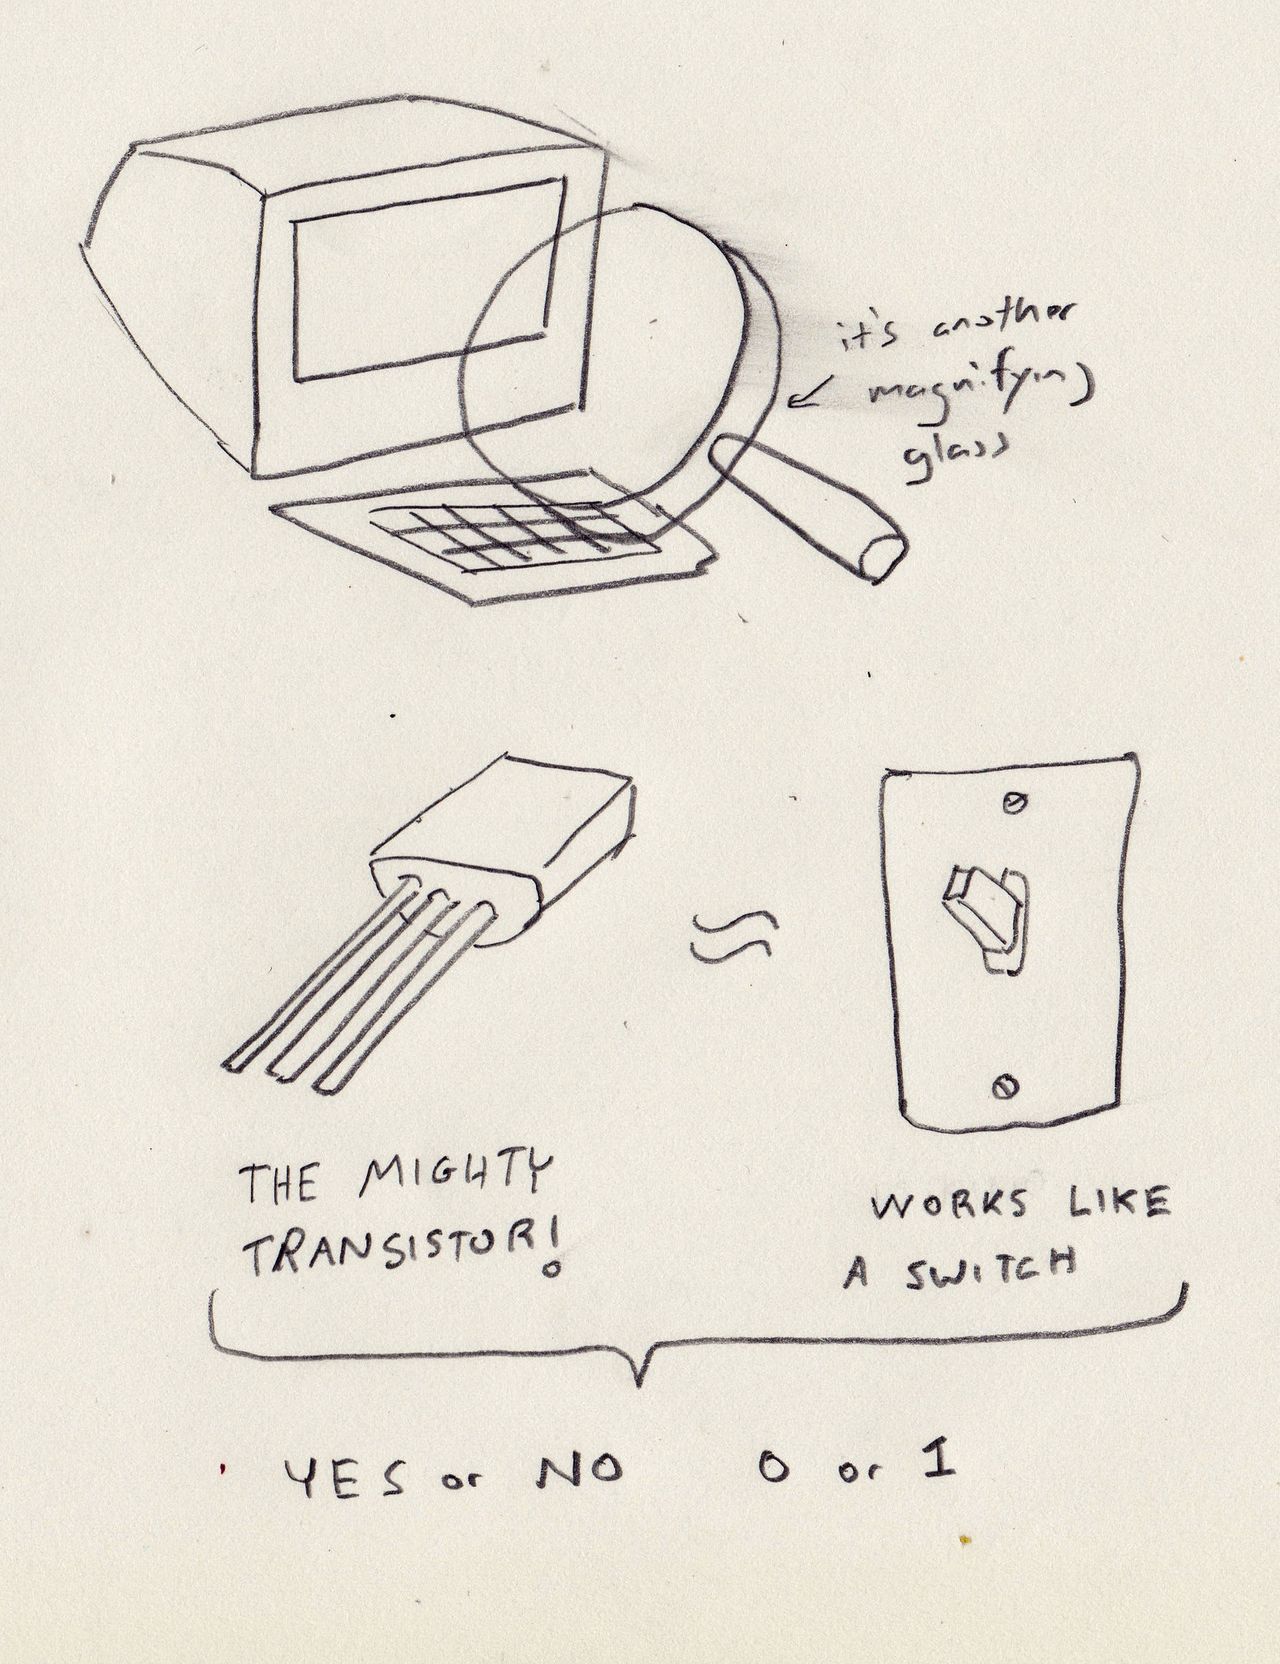 it's another
magnifying
glass
THE MIGHTY
TRANSISTOR!
WORKS LIKE
A SWITCH
YES or NO 0 or 1